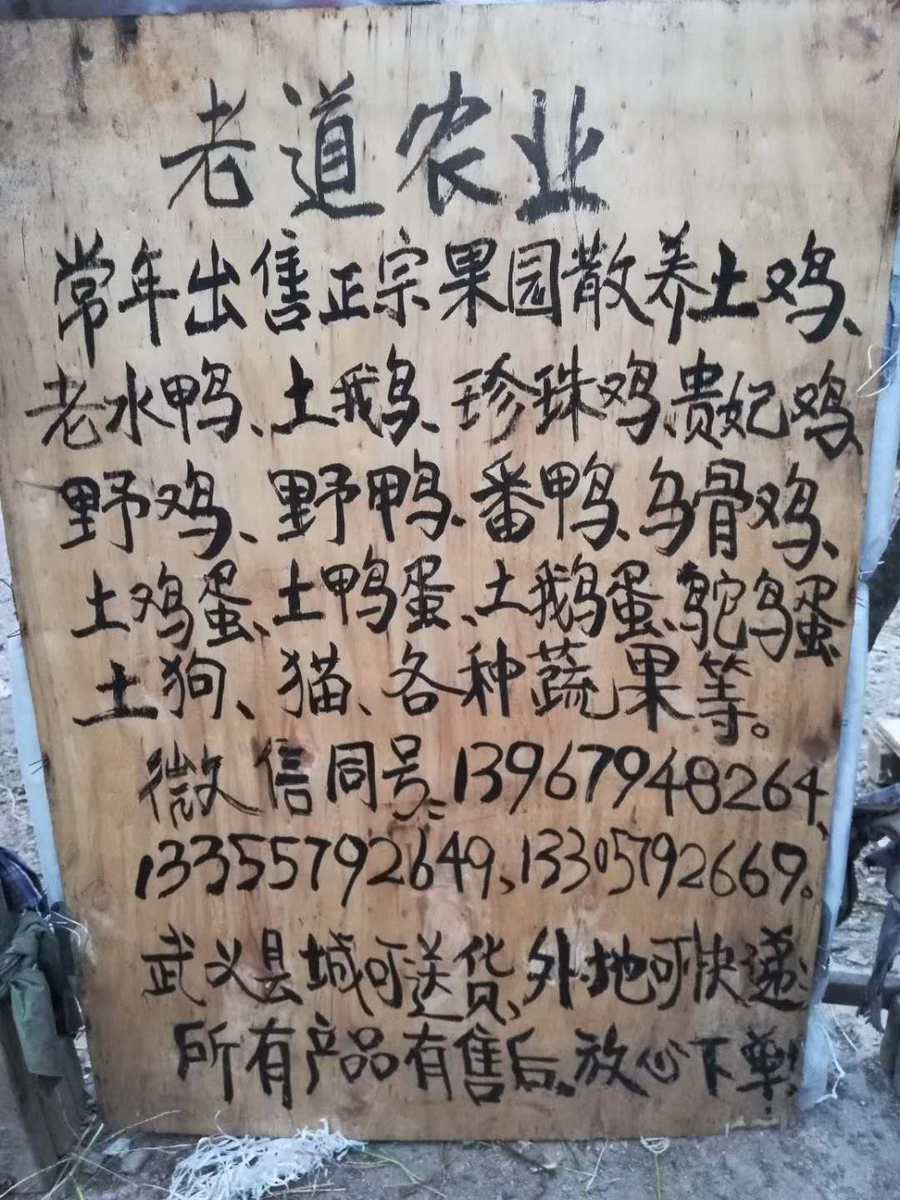 老道农业
常年出售正宗果园散养土鸡、
老水鸭、土鹅、珍珠鸡、贵妃鸡、
野鸡、野鸭、番鸭、乌骨鸡、
土鸡蛋、土鸭蛋、土鹅蛋、鸵鸟蛋
土狗、猫、各种蔬果等。
微信同号:13967948264、
13355792649、13305792669。
武义县城可送货,外地可快递;
所有产品有售后,放心下单!